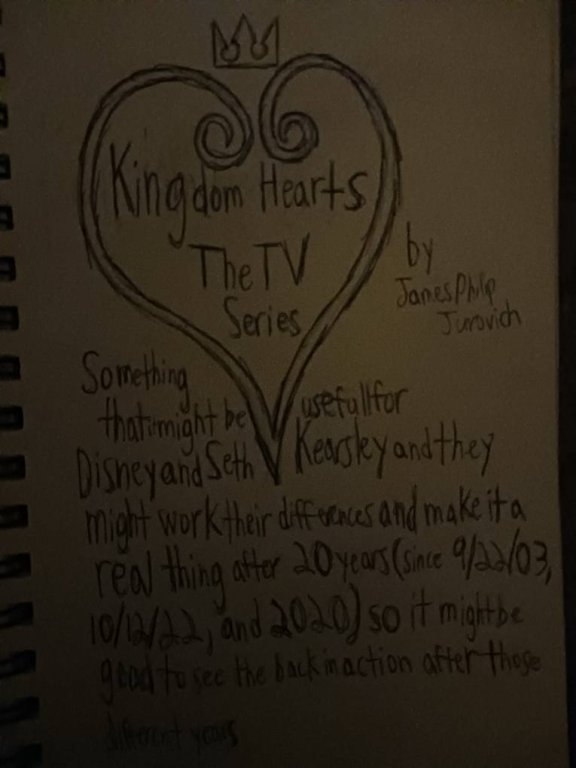 Kingdom Hearts
The TV
Series
by
James Philip
Jurovich
Something
that might be usefull for
Disney and Seth Kearsley and they
might work their differences and make it a
real thing after 20 years (since 9/22/03,
10/12/22, and 2020) so it might be
good to see the back in action after those
different years